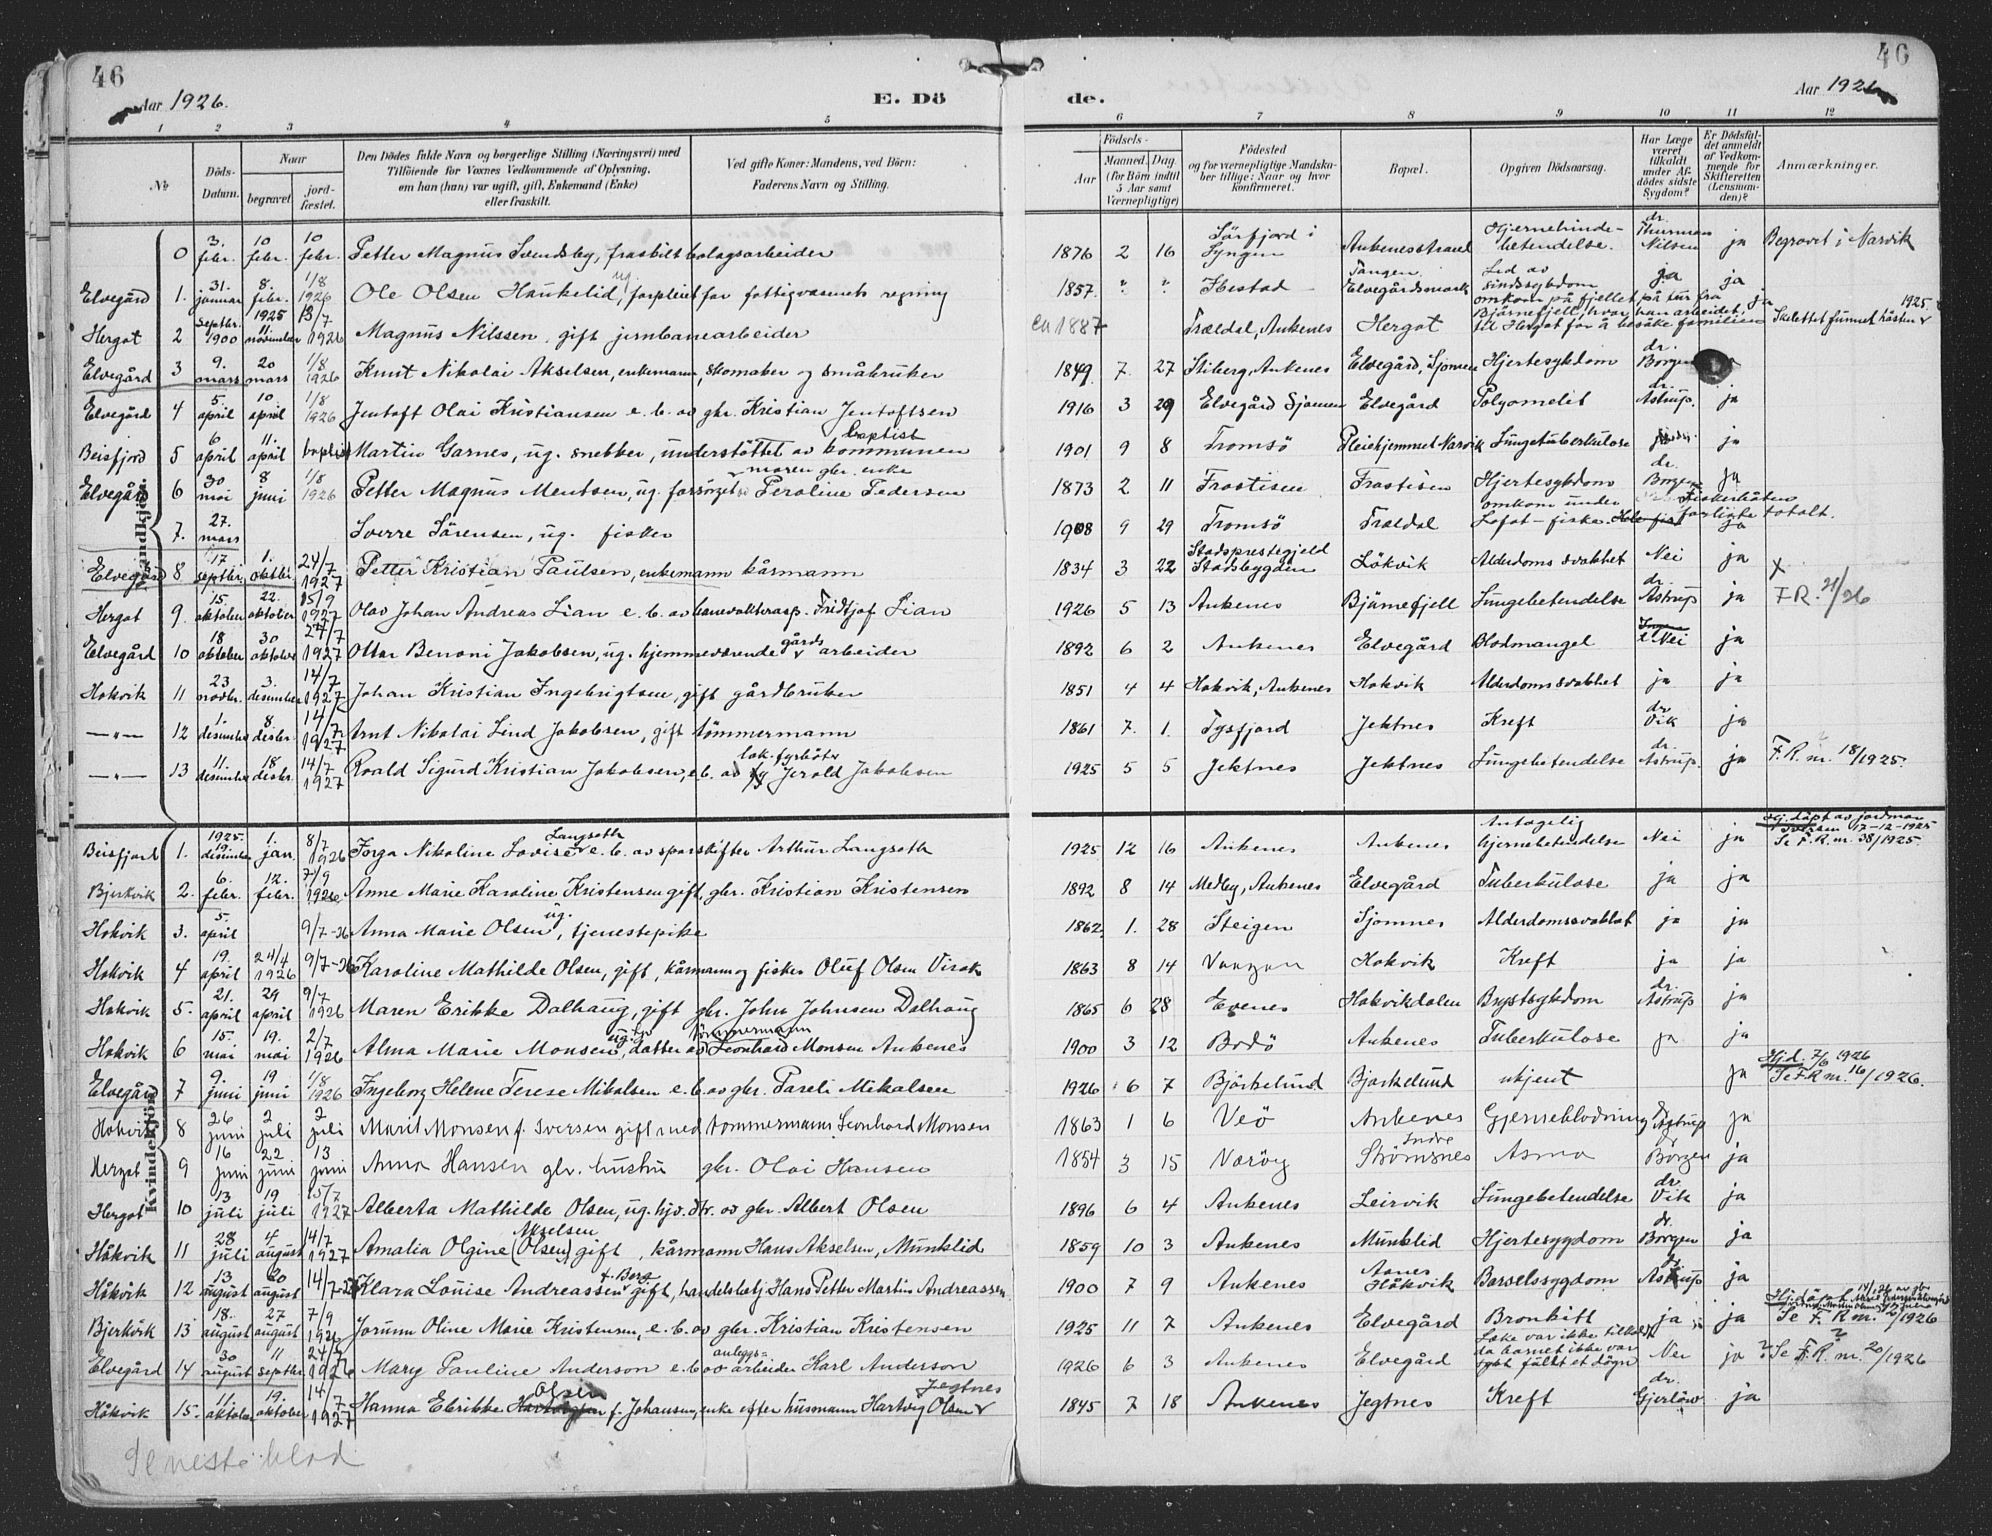 46
Aar 1926.
E. Dö
de.
46
Aar 1926
1 2 3 4 5 6 7 8 9 10 11 12
No
Döds-Datum.
Naar
begravet
jord-fæstet.
Den Dödes fulde Navn og borgerlige Stilling (Næringsvei) med
Tilföiende for Voxnes Vedkommende af Oplysning,
om han (hun) var ugift, gift, Enkemand (Enke)
eller fraskilt.
Ved gifte Koner: Mandens, ved Börn:
Faderens Navn og Stilling.
Födsels-
Aar
Maaned Dag
(for Börn indtil
5 Aar samt
Værnepligtige)
Födested
og for værnepligtige Mandska-
ber tillige: Naar og hvor
konfirmeret.
Bopæl.
Opgiven Dödsaarsag.
Har Læge
været
tilkaldt
under Af-
dödes sidste
Sygdom?
Er Dödsfal-
det anmeldt
af Vedkom-
mende for
Skifteretten
(Lensman-
den)?
Anmærkninger.
Mandkjön.
0 3. febr. 10 febr. 10 febr. Petter Magnus Svendsby, fraskilt bolagsarbeider 1876 2 16 Sörfjord i Lyngen Ankenesstrand Hjernehinde-betendelse. dr. Thurman Nilsen ja Begravet i Narvik
Elvegård 1. 31. januar 8. febr. 1/8 1926 Ole Olsen Haukelid, ug. forpleiet for fattigvæsenets regning 1857 " " Ibestad Tangen Elvegårdsmark Led av sindssykdom ja ja
Hergot 2 septbr. 1900 1925 11. november 13/7 1926 Magnus Nilssen, gift jernbanearbeider ca 1887 Trældal, Ankenes Hergot omkom på fjellet på tur fra Bjørnefjell, hvor han arbeidet, til Hergot for å besøke familien ja Skelettet funnet hösten 1925
Elvegård 3 9. mars 20 mars 1/8 1926 Knut Nikolai Akselsen, enkemann, skomaker og småbruker 1849 7. 27 Stiberg, Ankenes Elvegård, Sjomnen Hjertesykdom dr. Borgen
Elvegård 4 5. april 10 april 1/8 1926 Jentoft Olai Kristiansen e. b. av gbr. Kristian Jentoftsen 1916 3 29 Elvegård Sjomen Elvegård Polyomelit dr. Astrup. ja
Beisfjord 5 6 april 11. april baptist Martin Garnes, ug. snekker, understöttet av kommunen baptist 1901 9 8 Tromsö Pleiehjemmet Narvik Lungetuberkulose ja
Elvegård 6 30 mai 8 juni 1/8 1926 Petter Magnus Mentsen, ug. forsørget av moren gbr. enke Peroline Pedersen 1873 2 11 Frostisen Frostisen Hjertesykdom dr. Borgen ja
7. 27. mars Sverre Sörensen, ug. fisker 1908 9 29 Tromsö Trældal omkom under Lofot-fiske. Fiskerbåten forliste totalt. ja
Elvegård 8 17 septbr. 1. oktbr. 24/7 1927 Petter Kristian Paulsen, enkemann kårmann 1834 3 22 Stadsprestegjeld Stadsbygden Lökvik Alderdomssvakhet Nei ja X
Hergot 9. 15. oktober 22. oktober 15/9 1927 Olav Johan Andreas Lian e. b. av banevokterasp. Fridtjof Lian 1926 5 13 Ankenes Bjørnefjell Lungebetendelse dr. Astrup ja F.R. 21/26
Elvegård 10 18 oktober 30 oktober 24/7 1927 Ottar Benoni Jakobsen, ug. hjemmeværende gårdsarbeider 1892 6 2 Ankenes Elvegård Blodmangel Nei ja
Hokvik 11 23 novbr. 3. desember 14/7 1927 Johan Kristian Ingebrigtsen, gift gårdbruker 1851 4 4 Hokvik, Ankenes Hokvik Alderdomssvakhet ja ja
—„— 12 1. desember 8. desbr. 14/7 1927 Arnt Nikolai Lind Jakobsen, gift tömmermann 1861 7. 1. Tysfjord Jektnes Kreft dr. Vik ja
—„— 13 11. desember 18 desbr. 14/7 1927 Roald Sigurd Kristian Jakobsen, e. b. av lok.fyrböter Jerold Jakobsen 1925 5 5 Jektnes Jektnes Lungebetendelse dr. Astrup. ja F.R. nr. 18/1925.
Kvindekjön.
Beisfjord 1. 1925. 19. desember 1. jan. 8/7 1926 Inga Nikoline Lovise Langseth e. b. av sporskifter Arthur Langseth 1925 12 16 Ankenes Ankenes Antagelig hjernebetendelse Nei ja Hj. döpt av jordmor Iversen 17-12-1925 Se F.R. nr. 38/1925.
Bjerkvik 2. 6. febr. 12. febr. 7/9 1926 Anne Marie Karoline Kristensen gift, gbr. Kristian Kristensen 1892 8 14 Medby, Ankenes Elvegård Tuberkulose ja ja
Hokvik 3. 5. april 9/7-26 Anna Marie Olsen, ug. tjenestepike 1862 1. 28 Steigen Sjomnes Alderdomssvakhet ja ja
Hokvik 4 19. april 24/4 1926 9/7-26 Karoline Mathilde Olsen, gift, kårmann og fisker Oluf Olsen Virak 1863 8 14 Vaagan Hokvik Kreft ja ja
Hokvik 5. 21. april 29 april 9/7 1926 Maren Erikke Dalhaug, gift gbr. John Johnsen Dalhaug 1865 6 28 Evenes Hokvikdalen Brystsykdom dr. Astrup ja
Hokvik 6 15. mai 19. mai 2/7 1926 Alma Marie Monsen, ug. datter av tömmermann Leonhard Monsen Ankenes 1900 3 12 Bodö Ankenes Tuberkulose ja ja
Elvegård 7 9. juni 19 juni 1/8 1926 Ingeborg Helene Terese Mikalsen e. b. av gbr. Pareli Mikalsen 1926 6 7 Björkelund Bjorkelund ukjent ja Hj.d. 7/6 1926 Se F.R. nr. 16/1926.
Hokvik 8 26 juni 2 juli 2 juli Marit Monsen f. Iversen gift med tömmermann Leonhard Monsen 1863 1 6 Veö Ankenes Hjerneblödning dr. Astrup ja
Hergot 9 16 juni 22 juni 13 juni Anna Hansen gbr. hustru gbr. Olai Hansen 1854 3 15 Næröy Indre Strömsnes Asma Dr. Borgen ja
Hergot 10 13 juli 19 juli 15/7 1927 Alberta Mathilde Olsen, ug. hjv. dtr. av gbr. Albert Olsen 1896 6 4 Ankenes Leirvik Lungebetendelse dr. Vik ja
Håkvik 11 28 juli 4 august 14/7 1927 Amalia Olgine (Olsen) Akselsen gift, kårmann Hans Akselsen, Munklid 1859 10 3 Ankenes Munklid Hjertesygdom dr. Borgen ja
Håkvik 12 13 august 20 august 14/7-27 Klara Louise Andreassen f. Berg gift, handelsbetj. Hans Petter Martin Andreassen 1900 7 9 Ankenes Håkvik Barselssygdom dr. Astrup ja
Bjerkvik 13 18. august 27 august 7/9 1926 Jorunn Oline Marie Kristensen, e. b. av gbr. Kristian Kristensen 1925 11 7 Ankenes Elvegård Bronkitt ja ja Se F.R. nr. 2/1926
Elvegård 14 30 august 11 septbr. 24/7 1926 Mary Pauline Anderson e. b. av anleggs=arbeider Karl Anderson 1926 6 3 Ankenes Elvegård Læke var ikke tilkaldt da barnet ikke var sykt fullt et døgn Nei ja ? Se F.R. nr. 20/1926
Håkvik 15. 11. oktober 19. oktober 14/7 1927 Hanna Elrikke Olsen f. Johansen, enke efter husmann Hartvig Olsen Jegtnes 1845 7 18 Ankenes Jegtnes Kreft dr. Gjerløw ja
Se neste blad